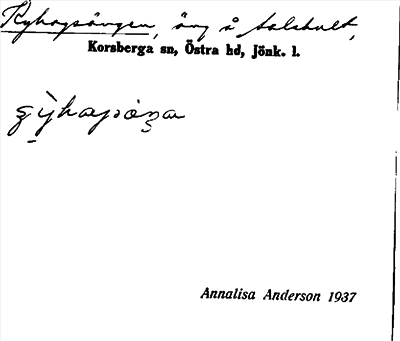 Ryhagsängen, äng å Asahult,
Korsberga sn, Östra hd, Jönk. l.
Annalisa Anderson 1937